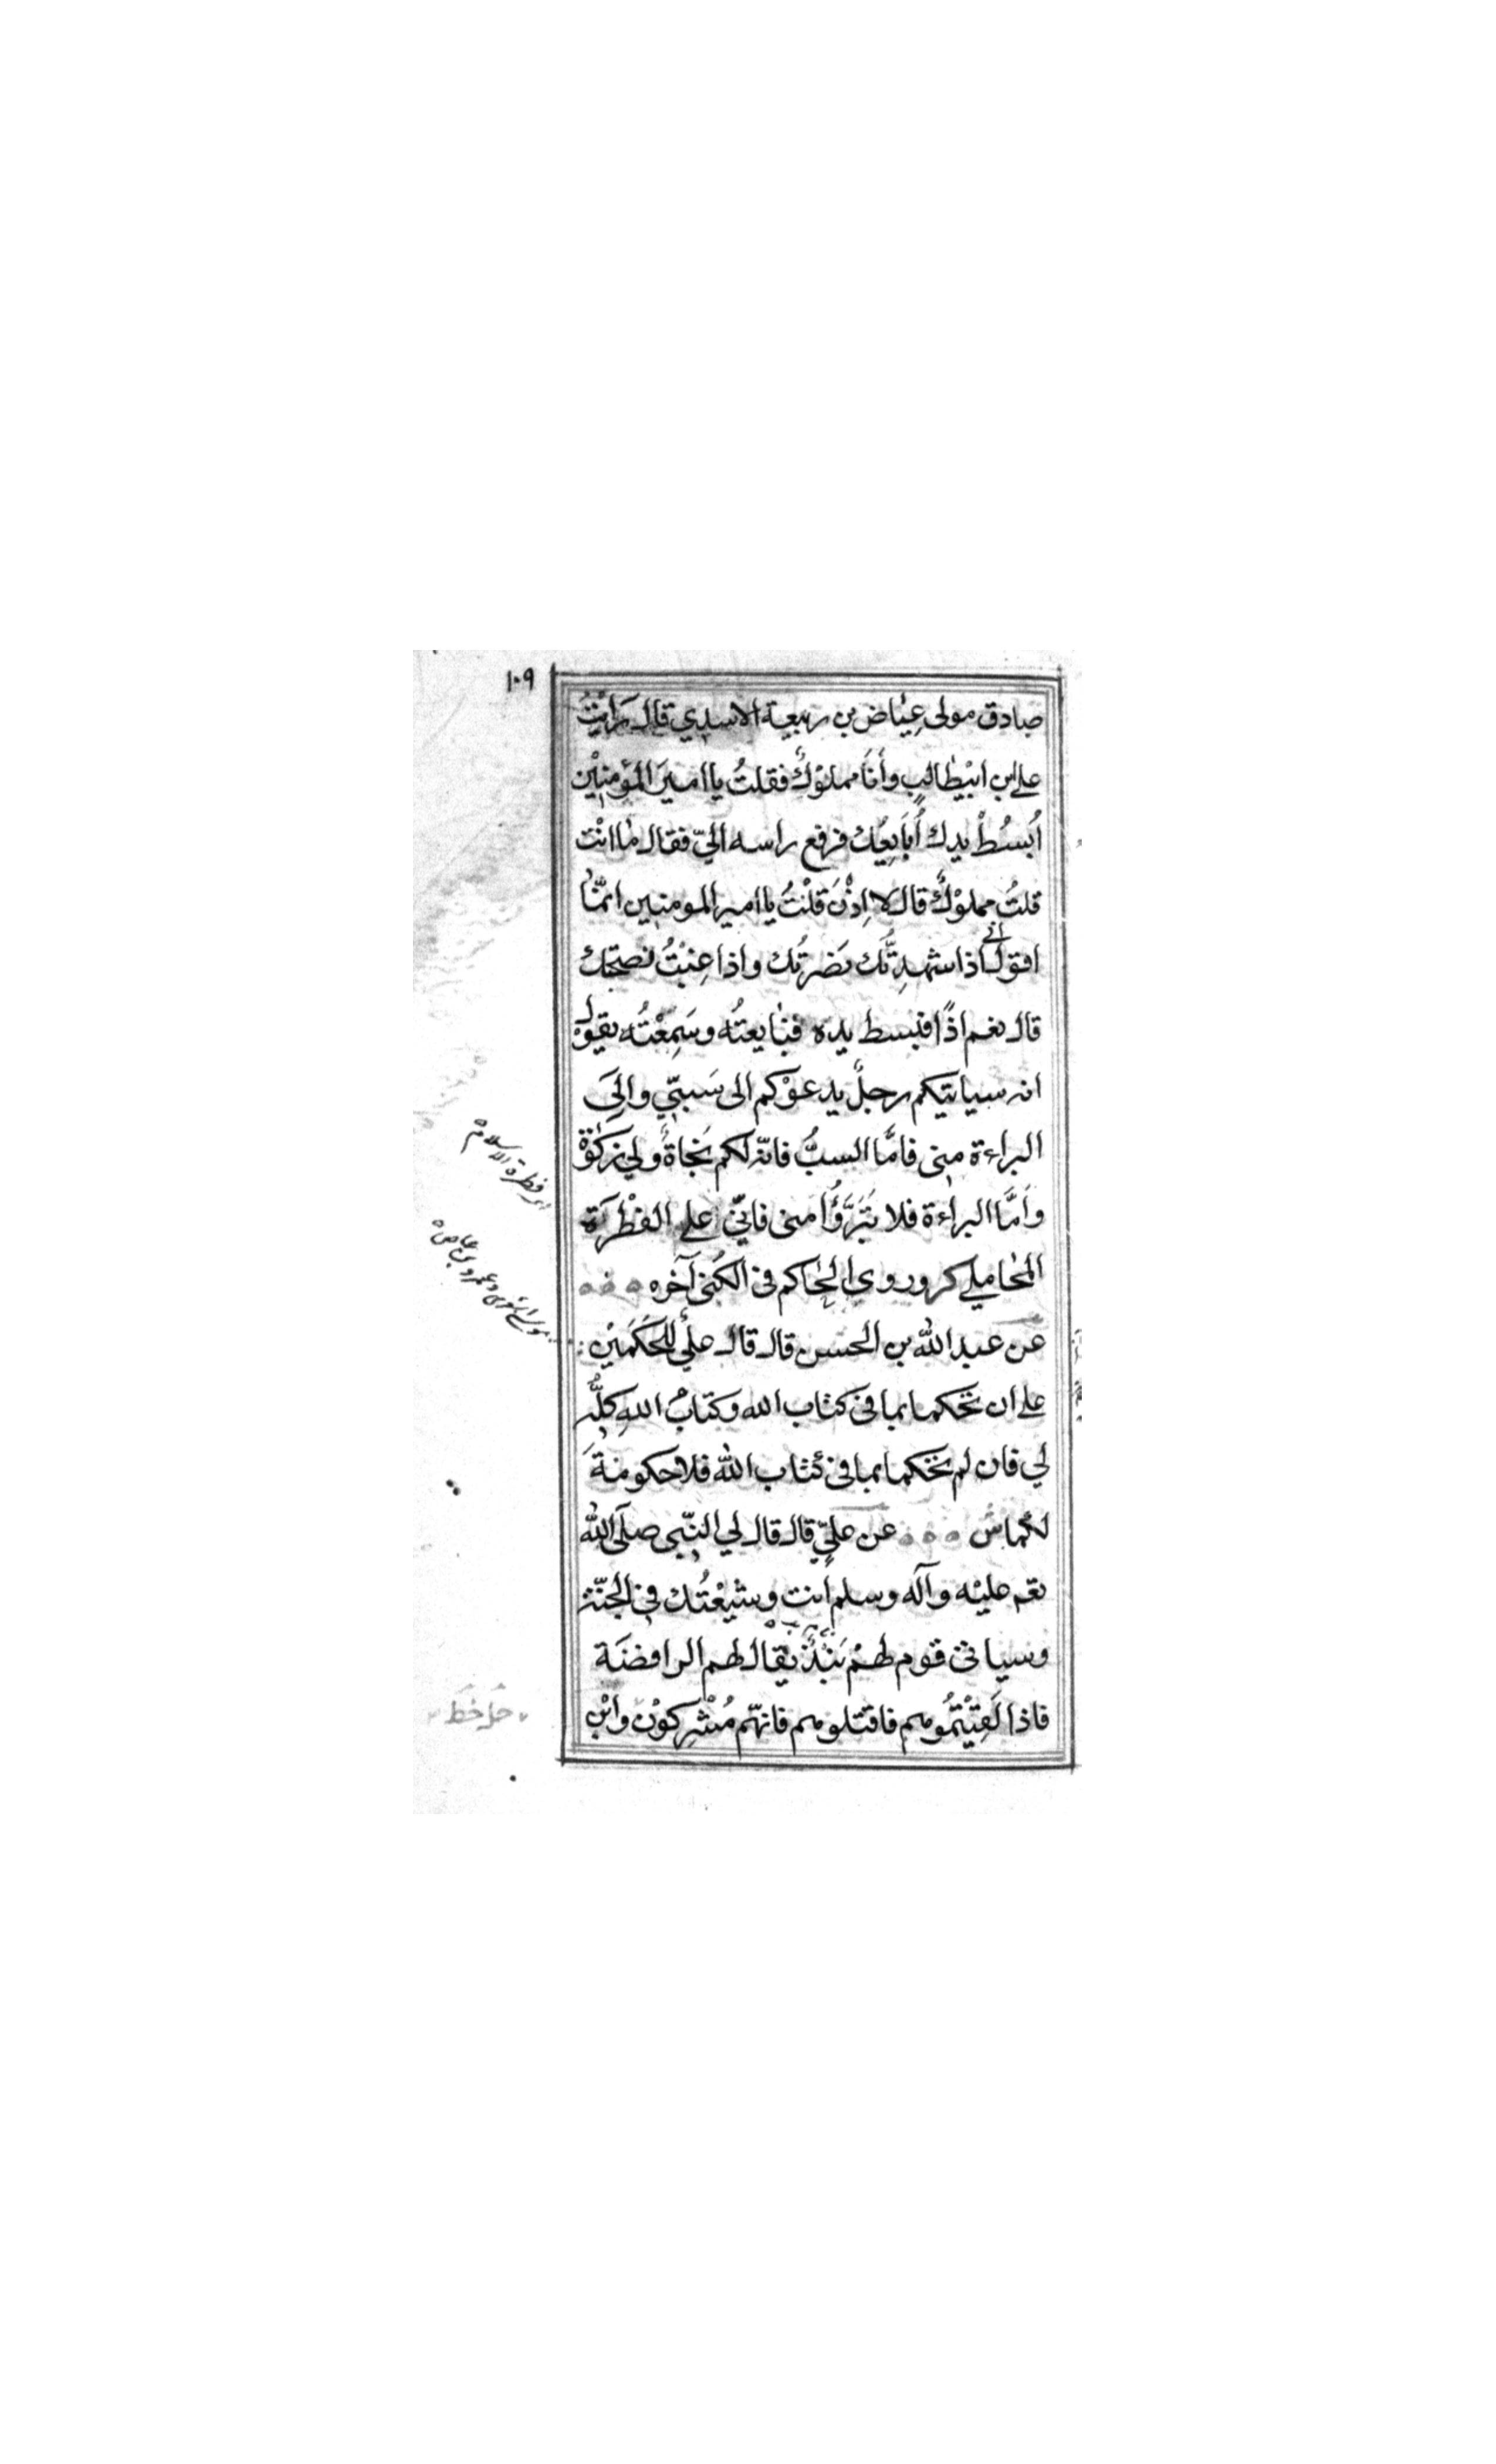 ١٠٩
صادق مولى عِيٰاض بن ربيعة الاسدي قال رَاَيْتُ
على بن ابيْطالبٍ وأنَا مملوْكٌ فقلتُ يا اميرَ المؤمنيْن
اُبسُطْ يدك أُبَايِعُك فرفع راسه اليّ فقال ما انْت
قلتُ مملوْكٌ قال لا اِذْنَ قلْتُ يا امير المومنين انمَّا
اقول انى اذا شهدتُّك نصَرتُك واذا غِبْتُ نصحتك
قال نعم اذًا فبسط يده فبٰايعتُه وسَمِعْتُه يقول
انه سياتيكم رجلٌ يدعوْكم الى سَبّي والىَ
البراءة منى فامَّا السبُّ فانّه لكم نجٰاةٌ ولي زكٰوة
وأمَّا البراءة فلا تبَرَّؤُا منى فانّي على الفطْرَة
المحٰاملي كر وروى الحٰاكم فى الكُنى آخره
عن عبد الله بن الحسن قال قال علىٌ للحكَمَيْن
على ان تحكما بما فى كتاب الله وكتابُ اللهِ كلُّه
لي فان لم تحكما بما فى كتاب الله فلا حكومةَ
لكما ش عن عليّ قال قال لي النّبى صلى الله
تعم عليْه وآله وسلم أنت وشيْعتُك فى الجنّة
وسياتى قوم لهمْ نَبْذٌ يقال لهم الرافضَة
فاذا لَقِيْتُمُوهم فاقتلوهم فانهّم مُشْرِكوْن وابْن
بر فطرة الاسلام
موسى اشعرى وعمرو بن عاص